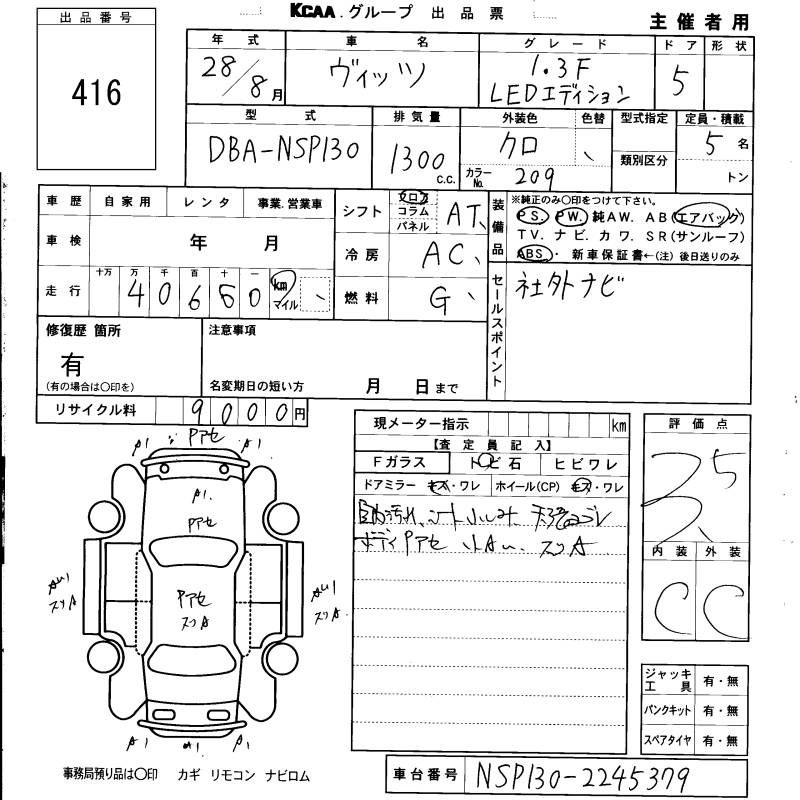 KCAA.グループ 出品票
主催者用
出品番号
416
年式 車名 グレード ドア 形状
28/8月 ヴィッツ 1.3F 5
LEDエディション
型式 排気量 外装色 色替 型式指定 定員・積載
DBA-NSP130 1300 c.c. クロ 5名
カラーNo. 209 類別区分 トン
車歴 自家用 レンタ 事業.営業車
車検 年 月
走行 十万 万 千 百 十 一
40660 km マイル
シフト フロア コラム パネル AT
冷房 AC
燃料 G
装備品
※純正のみ〇印をつけて下さい。
PS. PW. 純AW. AB(エアバッグ)
TV. ナビ. カワ. SR(サンルーフ)
ABS・ 新車保証書←(注)後日送りのみ
セールスポイント
社外ナビ
修復歴 箇所
有
(有の場合は〇印を)
注意事項
名変期日の短い方 月 日まで
リサイクル料 9000円
現メーター指示 km
【査定員記入】
Fガラス トビ石 ヒビワレ
ドアミラー キズ・ワレ ホイール(CP) キズ・ワレ
ボディPアセ 小AU. スリA
評価点
3.5
内装 外装
C C
A1 Pアセ A1
A1.
Pアセ
AU1
スリA
Pアセ
スリA
AU1
スリA
A1 A1 A1
ジャッキ工具 有・無
パンクキット 有・無
スペアタイヤ 有・無
事務局預り品は〇印 カギ リモコン ナビロム
車台番号 NSP130-2245379